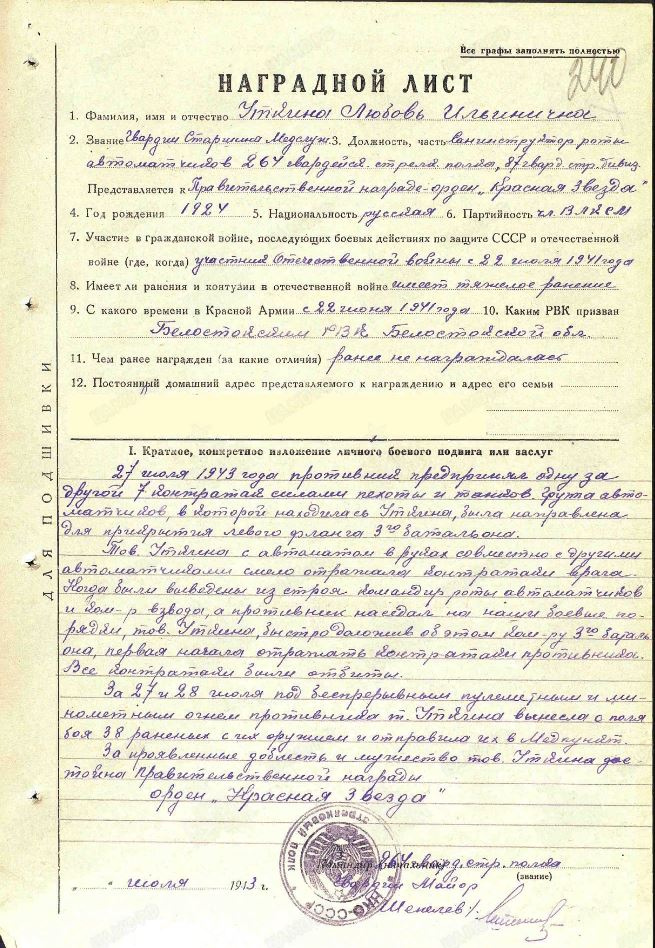 Все графы заполнять полностью
240
НАГРАДНОЙ ЛИСТ
1. Фамилия, имя и отчество Утягина Любовь Ильинична
2. Звание Гвардии Старшина Медслуж. 3. Должность, часть Санинструктор роты
автоматчиков 264 гвардейск. стрелк. полка, 87 гвард. стр. дивиз.
Представляется к Правительственной награде-орден „Красная Звезда"
4. Год рождения 1924 5. Национальность русская 6. Партийность чл. ВЛКСМ
7. Участие в гражданской войне, последующих боевых действиях по защите СССР и отечественной
войне (где, когда) участник Отечественной войны с 22 июля 1941 года
8. Имеет ли ранения и контузии в отечественной войне имеет тяжелое ранение
9. С какого времени в Красной Армии с 22 июня 1941 года 10. Каким РВК призван
Белостокским РВК Белостокской обл.
11. Чем ранее награжден (за какие отличия) ранее не награждалась
12. Постоянный домашний адрес представляемого к награждению и адрес его семьи
I. Краткое, конкретное изложение личного боевого подвига или заслуг
27 июля 1943 года противник предпринял одну за
другой 7 контратак силами пехоты и танков. Группа авто-
матчиков, в которой находилась Утягина, была направлена
для прикрытия левого фланга 3го батальона.
Тов. Утягина с автоматом в руках совместно с другими
автоматчиками смело отражала контратаки врага.
Когда были выведены из строя командир роты автоматчиков
и ком-р взвода, а противник наседал на наши боевые по-
рядки тов. Утягина, быстро доложив об этом ком-ру 3го баталь
она, первая начала отражать контратаки противника.
Все контратаки были отбиты.
За 27 и 28 июля под беспрерывным пулеметным и ми-
нометным огнем противника т. Утягина вынесла с поля
боя 38 раненых с их оружием и отправила их в Медпункт.
За проявленные доблесть и мужество тов. Утягина дос-
тойна правительственной награды
орден „Красная Звезда"
Командир (начальник) 264 гвард. стр. полка
(звание)
„ " июля 1943 г. Гвардии Майор
Шепелев
НКО-СССР
ДЛЯ ПОДШИВКИ